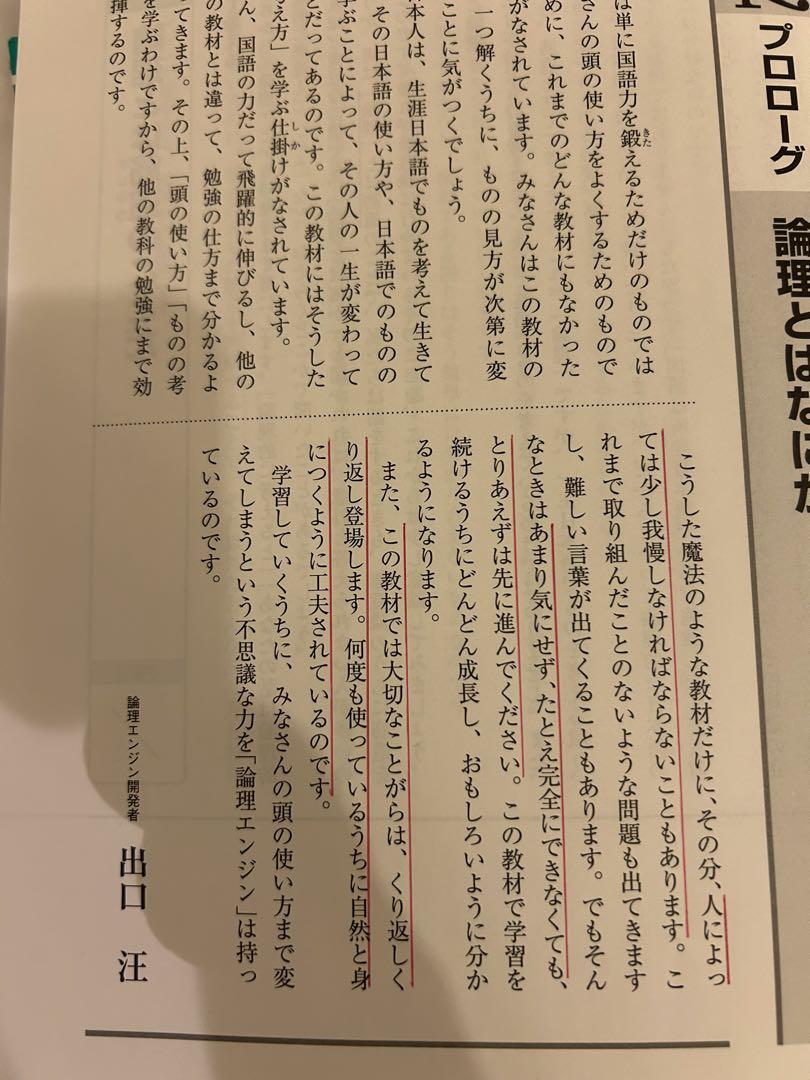 プロローグ
論理とはなにか
は単に国語力を鍛えるためだけのものでは
きた
さんの頭の使い方をよくするためのもので
めに、これまでのどんな教材にもなかった
がなされています。みなさんはこの教材の
一つ解くうちに、ものの見方が次第に変
ことに気がつくでしょう。
本人は、生涯日本語でものを考えて生きて
その日本語の使い方や、日本語でのものの
学ぶことによって、その人の一生が変わって
とだってあるのです。この教材にはそうした
え方」を学ぶ仕掛けがなされています。
しか
ん、国語の力だって飛躍的に伸びるし、他の
の教材とは違って、勉強の仕方まで分かるよ
てきます。その上、「頭の使い方」「ものの考
を学ぶわけですから、他の教科の勉強にまで効
揮するのです。
こうした魔法のような教材だけに、その分、人によっ
ては少し我慢しなければならないこともあります。こ
れまで取り組んだことのないような問題も出てきます
し、難しい言葉が出てくることもあります。でもそん
なときはあまり気にせず、たとえ完全にできなくても、
とりあえずは先に進んでください。この教材で学習を
続けるうちにどんどん成長し、おもしろいように分か
るようになります。
また、この教材では大切なことがらは、くり返しく
り返し登場します。何度も使っているうちに自然と身
につくように工夫されているのです。
学習していくうちに、みなさんの頭の使い方まで変
えてしまうという不思議な力を「論理エンジン」は持っ
ているのです。
論理エンジン開発者 出口 汪